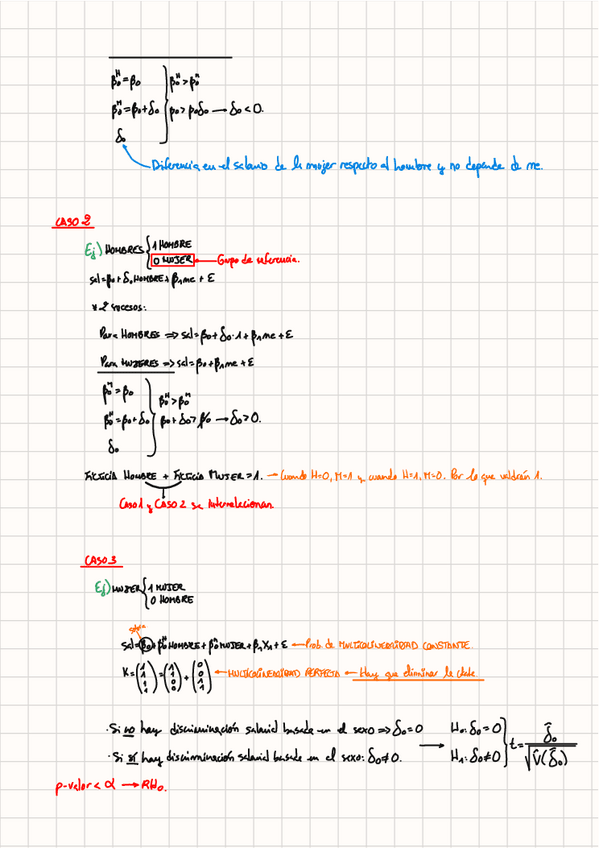 β₀ᴴ=β₀ } β₀ᴴ>β₀ᴹ
β₀ᴹ=β₀+δ₀ } β₀>β₀δ₀ → δ₀<0.
δ₀
Diferencia en el salario de la mujer respecto al hombre y no depende de me.
CASO 2
Ej) HOMBRES { 1 HOMBRE
0 MUJER ← Grupo de referencia.
sal=β₀+δ₀HOMBRE+β₁me+ε
2 sucesos:
Para HOMBRES ⇒ sal=β₀+δ₀·1+β₁me+ε
Para MUJERES ⇒ sal=β₀+β₁me+ε
β₀ᴹ=β₀ } β₀ᴴ>β₀ᴹ
β₀ᴴ=β₀+δ₀ } β₀+δ₀>β₀ → δ₀>0.
δ₀
FICTICIA HOMBRE + FICTICIA MUJER=1. → Cuando H=0, M=1 y cuando H=1, M=0. Por lo que valdrán 1.
CASO 1 y CASO 2 se interrelacionan
CASO 3
Ej) MUJER { 1 MUJER
0 HOMBRE
sal=β₀+β₀ᴴHOMBRE+β₀ᴹMUJER+β₁X₁+ε ← Prob. de MULTICOLINEALIDAD CONSTANTE.
X=(1 1 1 1)=(1 1 0 0)+(0 0 1 1) ← MULTICOLINEALIDAD PERFECTA ← Hay que eliminar la
· Si no hay discriminación salarial basada en el sexo ⇒ δ₀=0 → H₀: δ₀=0 } t= δ̂₀/√V̂(δ̂₀)
· Si sí hay discriminación salarial basada en el sexo: δ₀≠0. H₁: δ₀≠0
p-valor<α → RH₀.